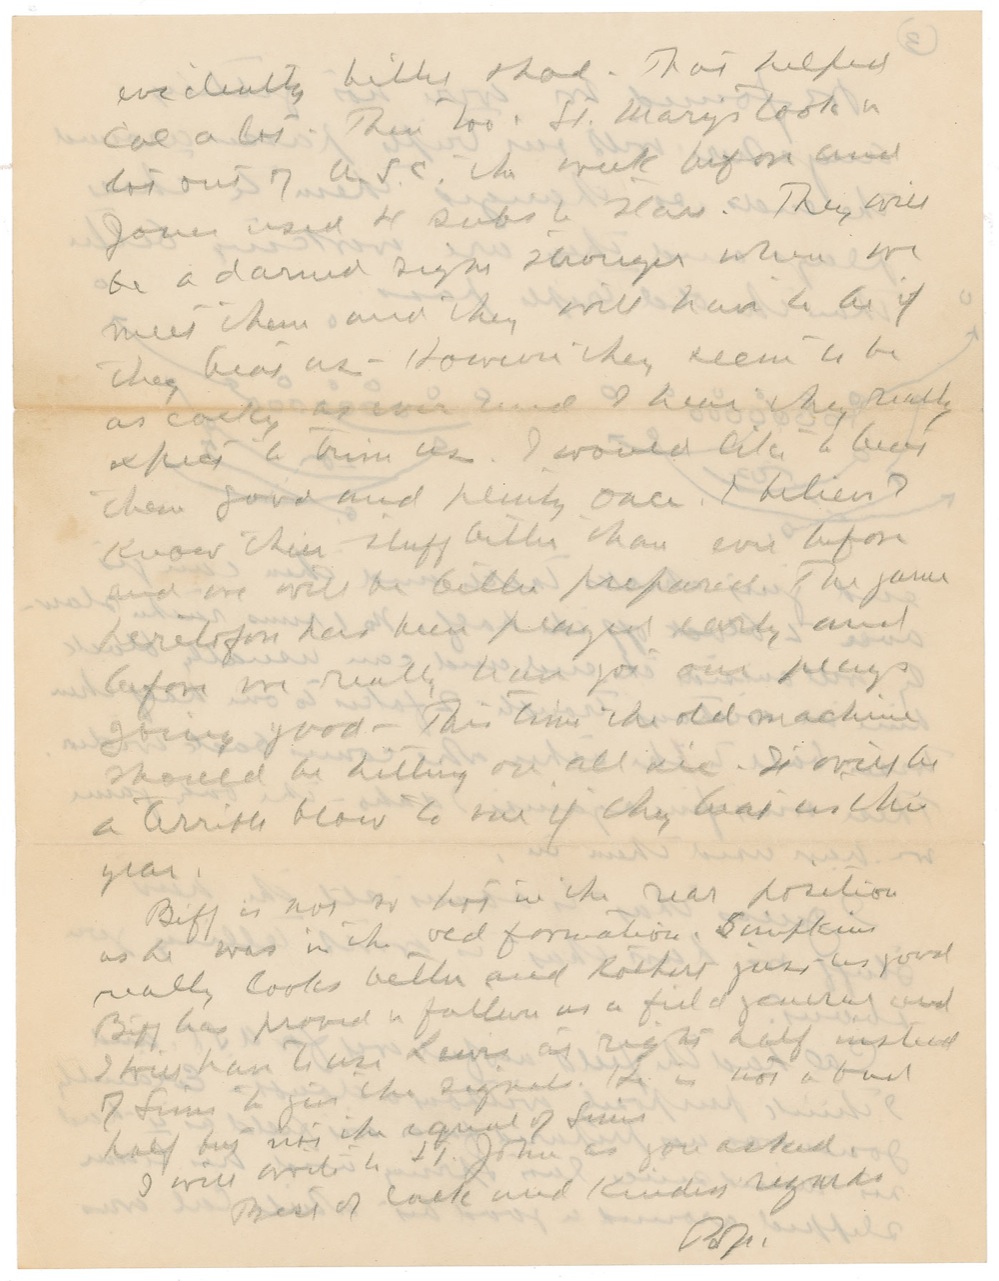 evidently better shod. That helped
Cal a lot. Then too. St. Marys took a
lot out of U.S.C. the week before and
Jones used 4 subs to start. They will
be a darned sight stronger when we
meet them and they will have to be if
they beat us - However they seem to be
as cocky as ever and I hear they really
expect to trim us. I would like to beat
them good and plenty once. I believe I
know their stuff better than ever before
and we will be better prepared. The game
heretofore has been played early and
before we really have got our plays
going good - This time the old machine
should be hitting on all six. It will be
a terrible blow to me if they beat us this
year.
Biff is not so hot in the rear position
as he was in the old formation. Simpkins
really looks better and Rothert just as good
Biff has proved a failure as a field general and
I will have to use Lewis as right half instead
of Sims to give the signals. He is not a bad
half but not the equal of Sims
I will write to St. John as you asked
Best of luck and kindest regards
Pop.